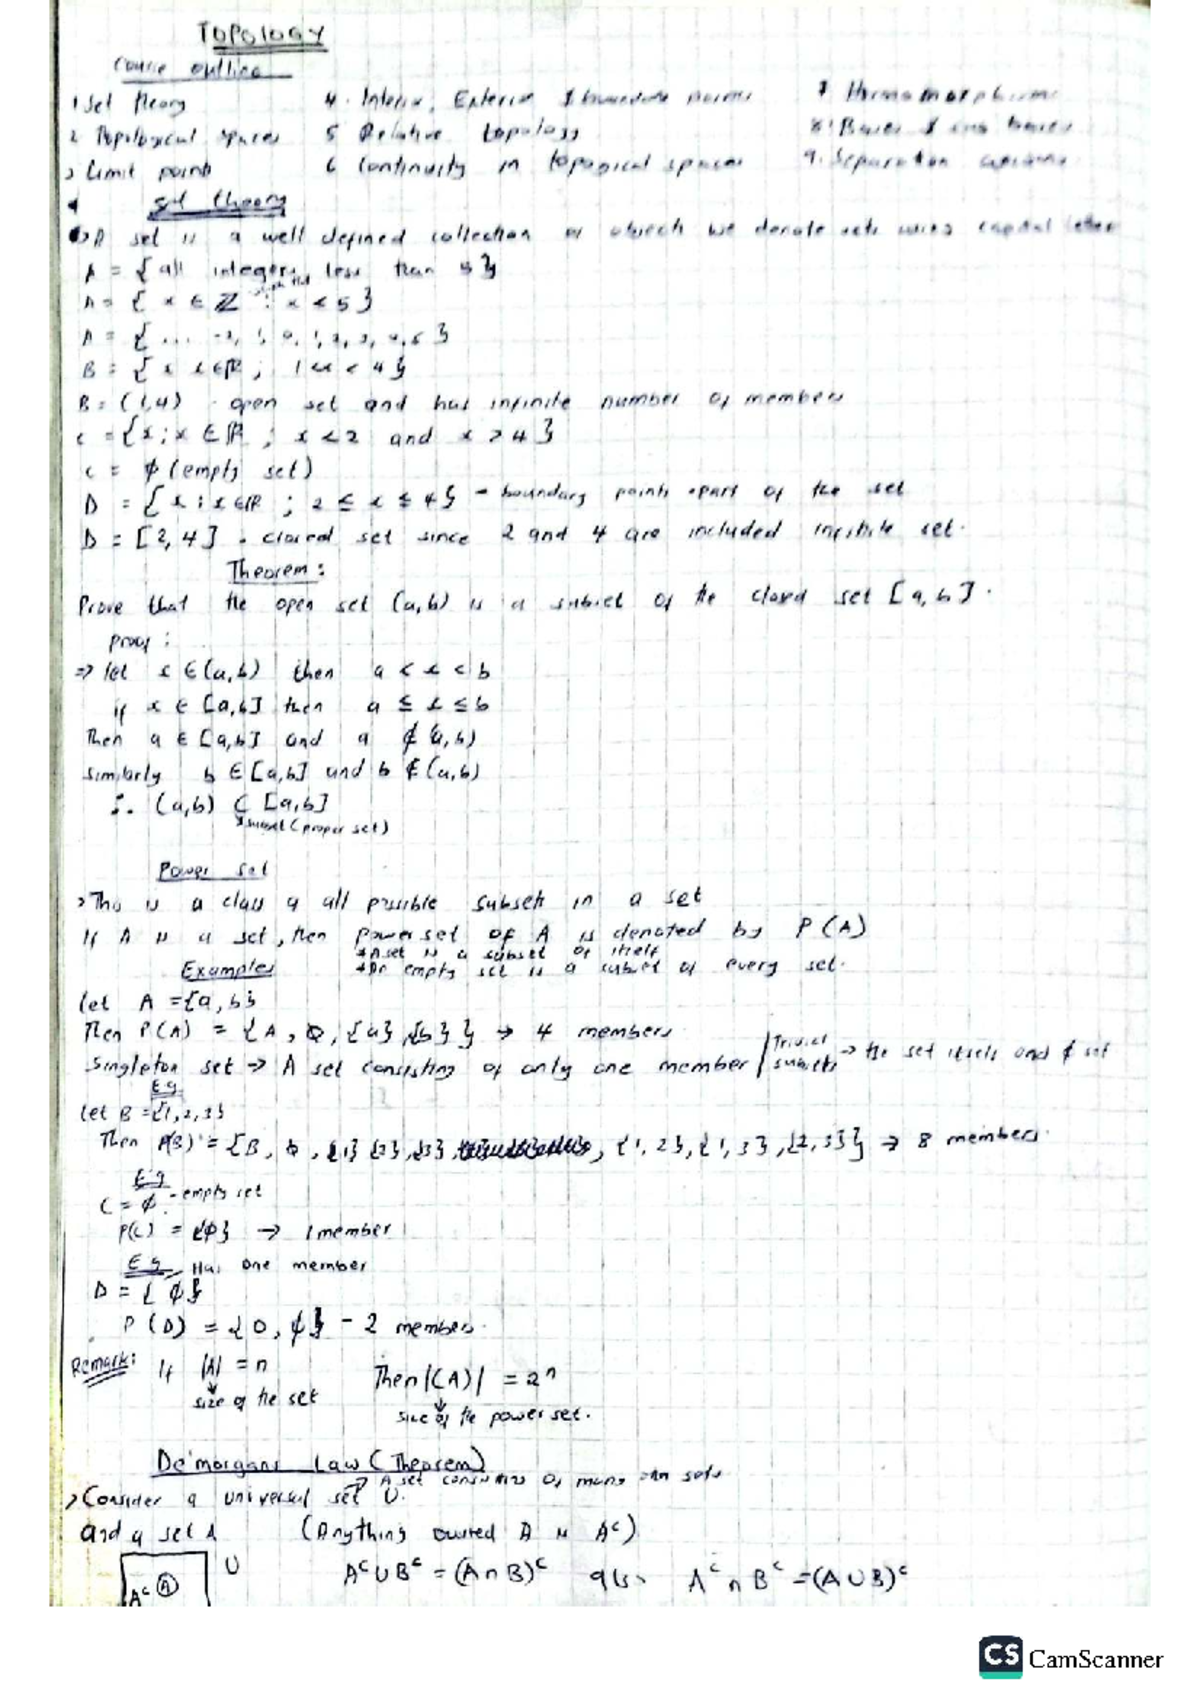 TOPOLOGY
Course outline
1 Set theory
2 Topological spaces
3 Limit points
4. Interior, Exterior & boundary points
5 Relative topology
6 Continuity in topogical spaces
7 Homomorphisms
8. Bases & sub bases
9. Separation axioms
Set theory
A set is a well defined collection of objects we denote sets using capital letter
A = { all integers less than 5 }
such that
A = { x ∈ ℤ : x < 5 }
B = { x x ∈ ℝ ; 1 < x < 4 }
B = (1,4) - open set and has infinite number of members
C = { x ; x ∈ ℝ ; x < 2 and x > 4 }
C = ∅ (empty set)
D = { x : x ∈ ℝ ; 2 ≤ x ≤ 4 } - boundary points part of the set
D = [2, 4] - closed set since 2 and 4 are included infinite set.
Theorem :
Prove that the open set (a, b) is a subset of the closed set [a, b].
Proof :
⇒ let x ∈ (a, b) then a < x < b
if x ∈ [a, b] then a ≤ x ≤ b
Then a ∈ [a, b] and a ∉ (a, b)
Similarly b ∈ [a, b] and b ∉ (a, b)
∴ (a,b) ⊂ [a, b]
subset (proper set)
Power set
> This is a class of all possible subsets in a set
If A is a set, then power set of A is denoted by P(A)
* A set is a subset of itself
Examples
* An empty set is a subset of every set.
let A = {a, b}
Then P(A) = { A, ∅, {a}, {b} } → 4 members
Singleton set → A set consisting of only one member / Trivial subsets → the set itself and ∅ set
Eg
let B = {1, 2, 3}
Then P(B) = {B, ∅, {1} {2}, {3}, , {1, 2}, {1, 3}, {2, 3}} → 8 members
Eg
C = ∅ - empty set
P(C) = {∅} → 1 member
Eg Has one member
D = { ∅ }
P(D) = { D, ∅ } - 2 members.
Remark: If |A| = n Then |(A)| = 2ⁿ
size of the set
size of the power set.
De'morgans Law (Theorem)
A set consists of many sets
> Consider a universal set U.
and a set A (Anything A is Aᶜ)
U
Aᶜ A
Aᶜ ∪ Bᶜ = (A ∩ B)ᶜ also Aᶜ ∩ Bᶜ = (A ∪ B)ᶜ
CS CamScanner